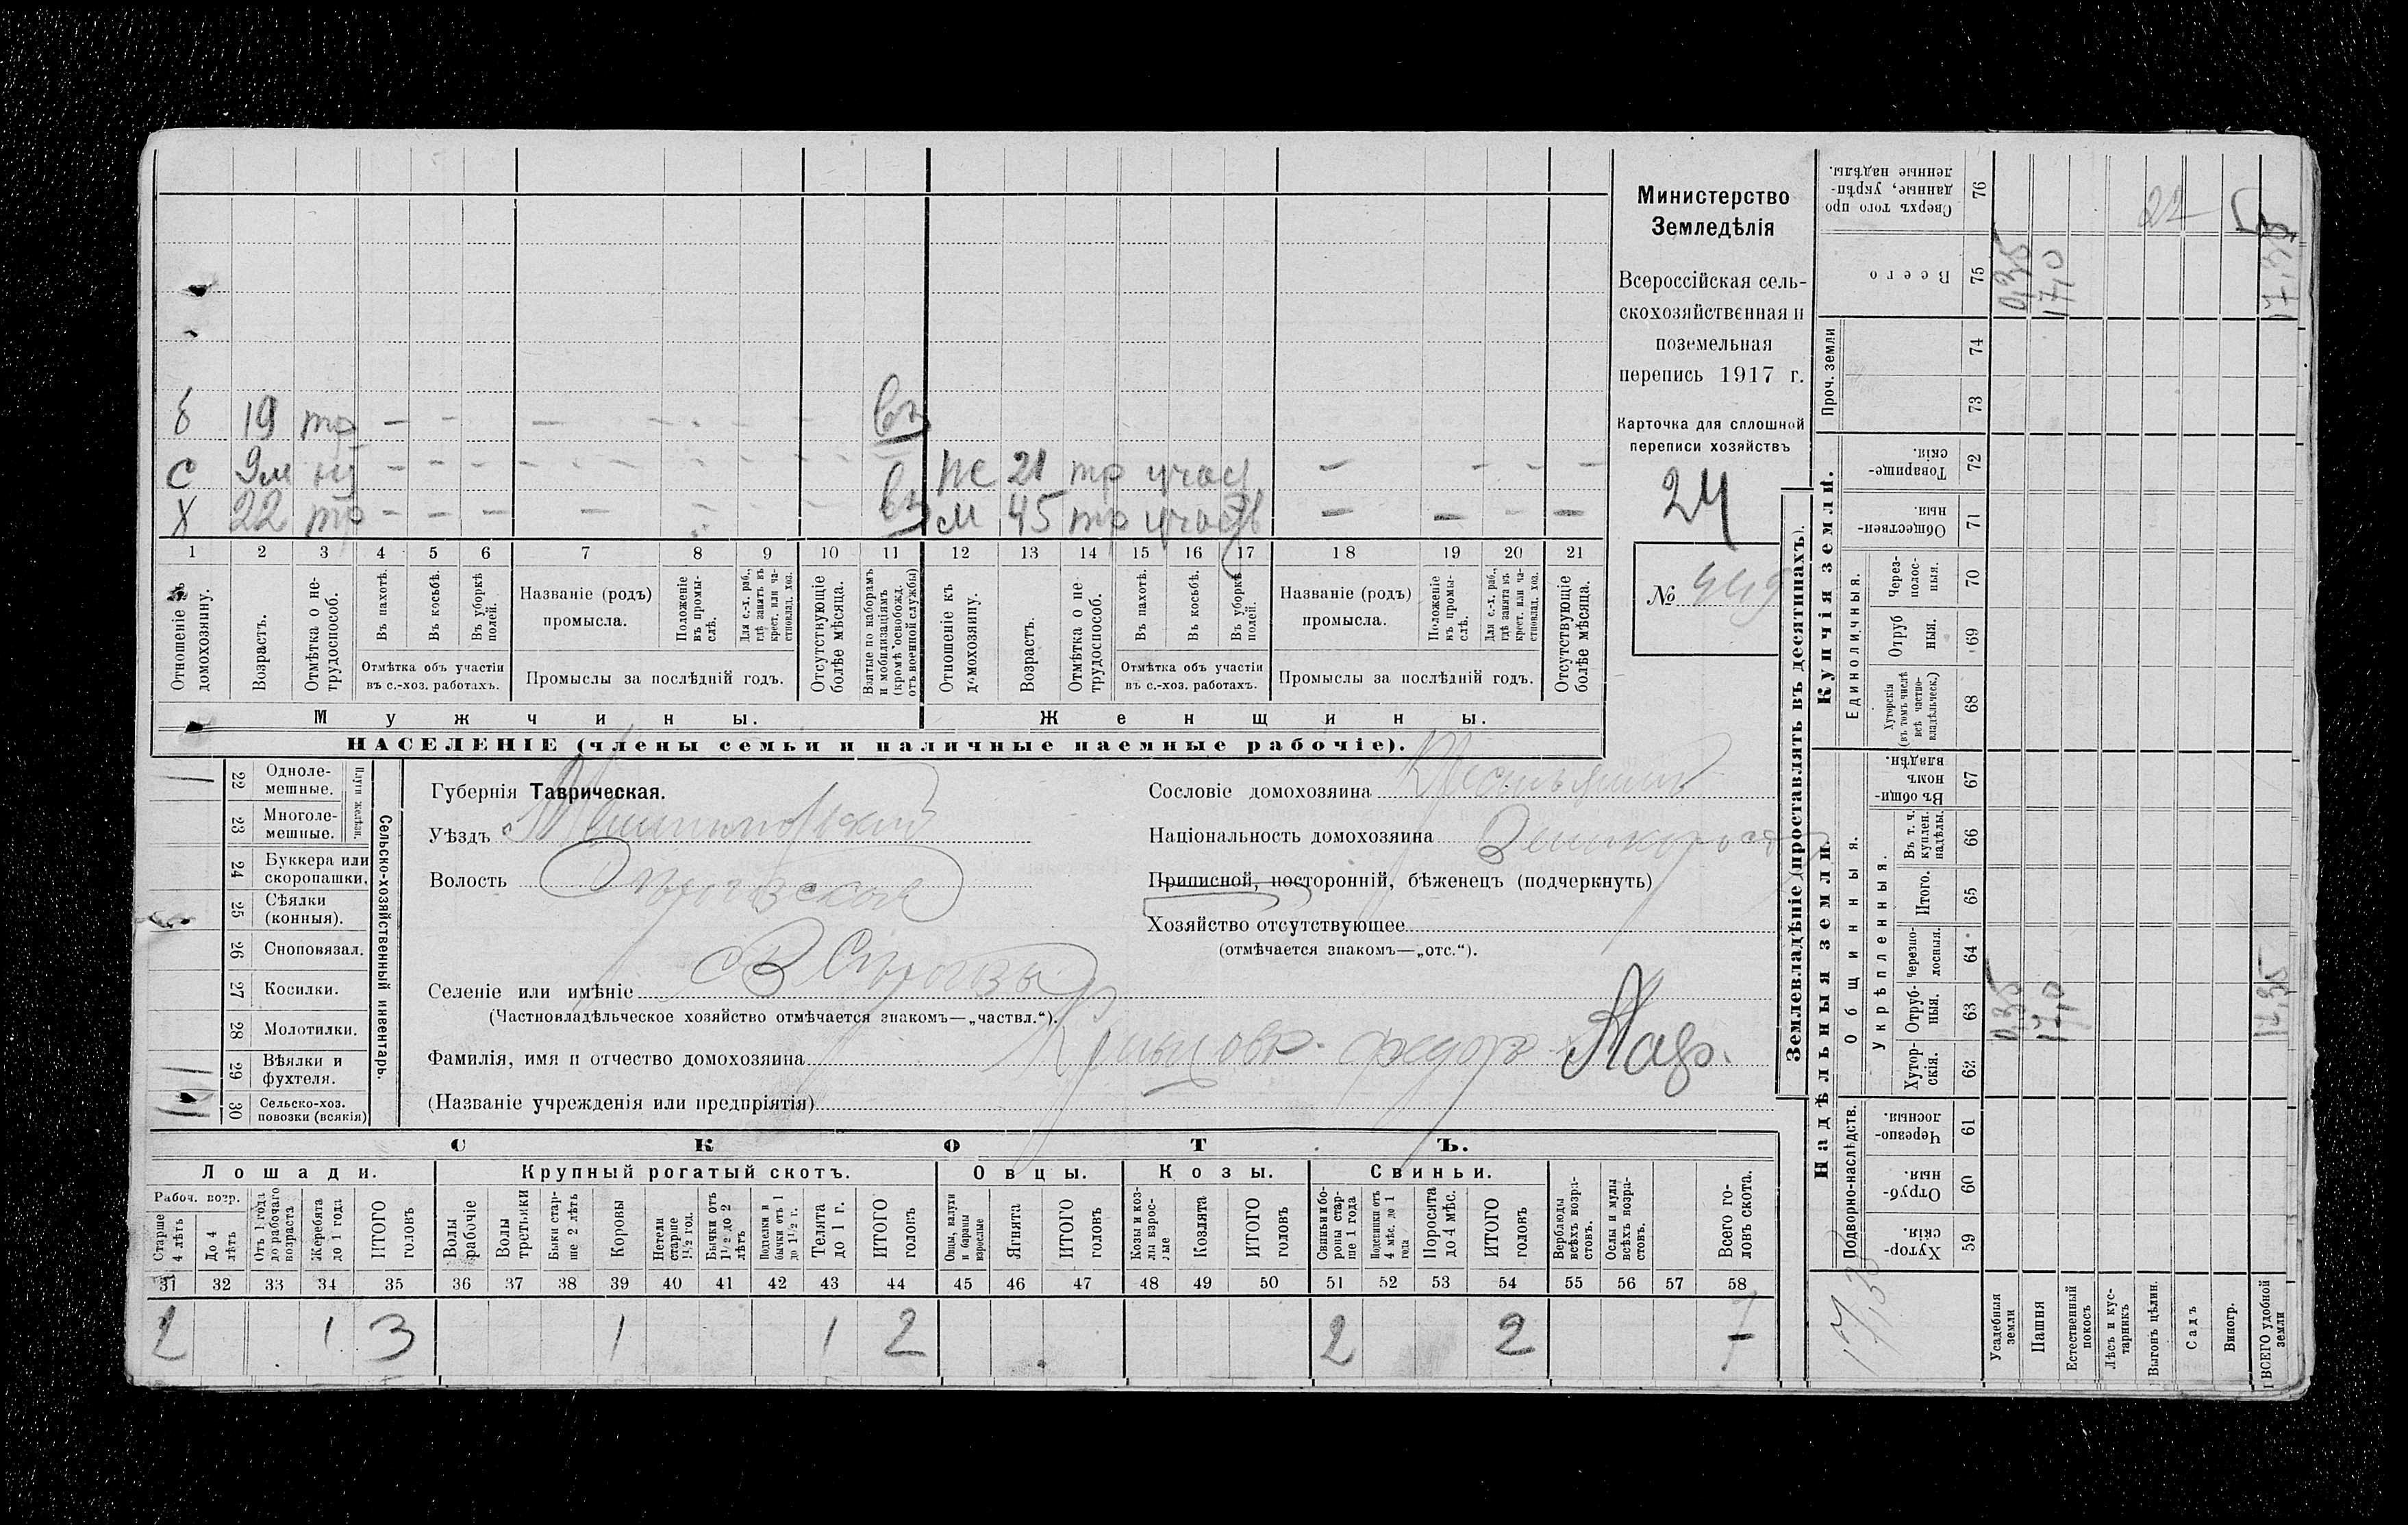 б 19 тр — — — — — вз
с 9м н — — — — — — — ж 21 тр — — — —
х 22 тр — — — — — — вз м 45 тр — — — —
1 2 3 4 5 6 7 8 9 10 11 12 13 14 15 16 17 18 19 20 21
Отношеніе къ домохозяину.
Возрастъ.
Отмѣтка о не-
трудоспособ.
Въ пахотѣ.
Въ косьбѣ.
Въ уборкѣ
полей.
Отмѣтка объ участіи
въ с.-хоз. работахъ.
Названіе (родъ)
промысла.
Положеніе
въ промы-
слѣ.
Для с.-х. раб.,
гдѣ занятъ въ
крест. или ча-
стновлад. хоз.
Промыслы за послѣдній годъ.
Отсутствующіе
болѣе мѣсяца.
Взятые по наборамъ
и мобилизаціямъ
(кромѣ освобожд.
отъ военной службы)
Отношеніе къ
домохозяину.
Возрастъ.
Отмѣтка о не
трудоспособ.
Въ пахотѣ.
Въ косьбѣ.
Въ уборкѣ
полей.
Отмѣтка объ участіи
въ с.-хоз. работахъ.
Названіе (родъ)
промысла.
Положеніе
въ промы-
слѣ.
Для с.-х. раб.,
гдѣ занята въ
крест. или ча-
стновлад. хоз.
Промыслы за послѣдній годъ.
Отсутствующіе
болѣе мѣсяца.
Мужчины.
Женщины.
НАСЕЛЕНІЕ (члены семьи и наличные наемные рабочіе).
Министерство
Земледѣлія
Всероссійская сель-
скохозяйственная и
поземельная
перепись 1917 г.
Карточка для сплошной
переписи хозяйствъ
24
№ 449
22 Одноле-
мешные.
23 Многоле-
мешные.
Плуги желѣзн.
24 Буккера или
скоропашки.
25 Сѣялки
(конныя).
26 Сноповязал.
27 Косилки.
28 Молотилки.
29 Вѣялки и
фухтеля.
30 Сельско-хоз.
повозки (всякія)
Сельско-хозяйственный инвентарь.
Губернія Таврическая.
Уѣздъ Мелитопольскій
Волость
Селеніе или имѣніе
(Частновладѣльческое хозяйство отмѣчается знакомъ—„частвл.“).
Фамилія, имя и отчество домохозяина
(Названіе учрежденія или предпріятія)
Сословіе домохозяина Крестьянинъ
Національность домохозяина Великоросъ
Приписной, посторонній, бѣженецъ (подчеркнуть)
Хозяйство отсутствующее
(отмѣчается знакомъ—„отс.“).
СКОТЪ.
Лошади.
Крупный рогатый скотъ.
Овцы.
Козы.
Свиньи.
Рабоч. возр.
Старше
4 лѣтъ
До 4
лѣтъ
Отъ 1 года
до рабочаго
возраста
Жеребята
до 1 года
ИТОГО
головъ
Волы
рабочіе
Волы
третьяки
Быки стар-
ше 2 лѣтъ
Коровы
Нетели
старше
1½ год.
Бычки отъ
1½ до 2
лѣтъ
Подтелки и
бычки отъ 1
до 1½ г.
Телята
до 1 г.
ИТОГО
головъ
Овцы, валухи
и бараны
взрослые
Ягнята
ИТОГО
головъ
Козы и коз-
лы взрос-
лые
Козлята
ИТОГО
головъ
Свиньи и бо-
ровы стар-
ше 1 года
Подсвинки отъ
4 мѣс. до 1
года
Поросята
до 4 мѣс.
ИТОГО
головъ
Верблюды
всѣхъ возра-
стовъ.
Ослы и мулы
всѣхъ возра-
стовъ.
Всего го-
ловъ скота.
31 32 33 34 35 36 37 38 39 40 41 42 43 44 45 46 47 48 49 50 51 52 53 54 55 56 57 58
2 1 3 1 1 2 2 2 7
Землевладѣніе (проставлять въ десятинахъ).
Надѣльныя земли.
Купчія земли.
Проч. земли
Подворно-наслѣдств.
Общинныя.
Укрѣпленныя.
Единоличныя.
Хутор-
скія. 59
Отруб-
ныя. 60
Черезпо-
лосныя. 61
Хутор-
скія. 62
Отруб-
ныя. 63
Черезпо-
лосныя. 64
Итого. 65
Въ т. ч.
куплен.
надѣлы. 66
Въ общи-
номъ
владѣн. 67
Хуторскія
(въ томъ числѣ
всѣ частно-
владѣльческ.) 68
Отруб
ныя. 69
Через-
полос-
ныя. 70
Обществен-
ныя. 71
Товарище-
скія. 72
73
74
Всего 75
Сверхъ того про-
данные, укрѣп-
ленные надѣлы. 76
Усадебныя
земли
0,35 0,35
Пашня
17,0 17,0
Естественный
покосъ
Лѣсъ и кус-
тарникъ
Выгонъ цѣлин.
Садъ
Виногр.
ВСЕГО удобной
земли
17,35 17,35
17,35
22
5